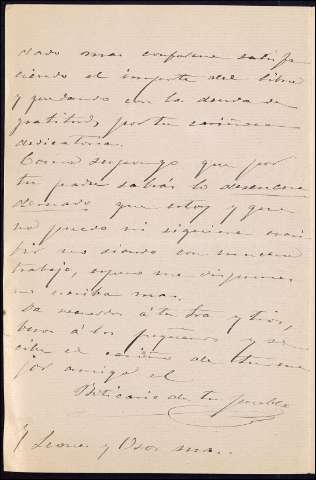 dado mas conforme satisfa
ciendo el importe del libro
y quedando con la deuda de
gratitud, por tu cariñosa
dedicatoria.
Como supongo que por
tu padre sabrás lo desencua
dernado que estoy y que
no puedo ni siquiera escri
bir no siendo con inmenso
trabajo, espero me dispenses
no escriba mas.
Da recuerdos á tu Sra y tios,
besos á los pequeños y re
cibe el cariño de tu me
jor amigo el
Boticario de tu pueblo
y